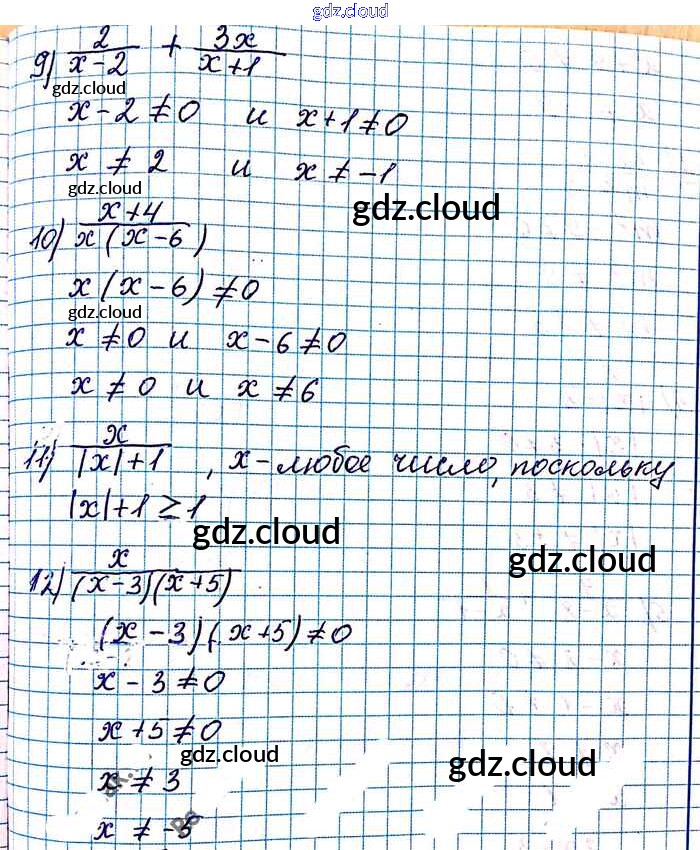 gdz.cloud
9) 2/(x-2) + 3x/(x+1)
gdz.cloud
x-2≠0 и x+1≠0
x≠2 и x≠-1
gdz.cloud
gdz.cloud
10) (x+4)/(x(x-6))
x(x-6)≠0
gdz.cloud
x≠0 и x-6≠0
x≠0 и x≠6
11) x/(|x|+1), x-любое число, поскольку
|x|+1≥1
gdz.cloud
gdz.cloud
12) x/((x-3)(x+5))
(x-3)(x+5)≠0
x-3≠0
x+5≠0
gdz.cloud
gdz.cloud
x≠3
x≠-5